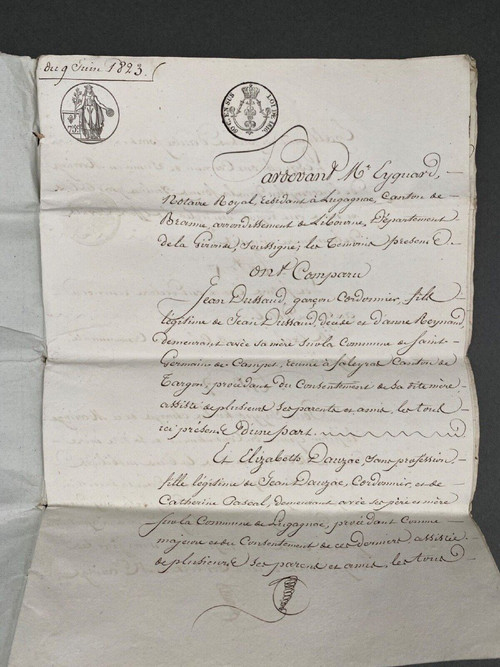 du 9 Juin 1823.
60 CEN. SUS
LOI DE 1816.
Pardevant Me Eyquard,
Notaire Royal résidant à Lugagnac, Canton de
Branne, arrondissement de Libourne, Département
de la Gironde, soussigné; les témoins présens.
ont Comparu
Jean Dussaud, garçon Cordonnier, fils
légitime de Jean Dussaud, décédé et d'anne Reynaud
demeurant avec sa mère sur la Commune de Saint
Germain de Campet, réunie à faleyras Canton de
Targon, procédant du Consentement de sa dite mère,
assisté de plusieurs ses parents et amis, les tous
ici présens d'une part.
Et Elizabeth Dauzac, sans profession,
fille légitime de Jean Dauzac, Cordonnier, et de
Catherine Pascal, demeurant avec ses père et mère
sur la Commune de Lugagnac, procédant Comme
majeure et du Consentement de ces derniers, assistée
de plusieurs ses parens et amis, les tous